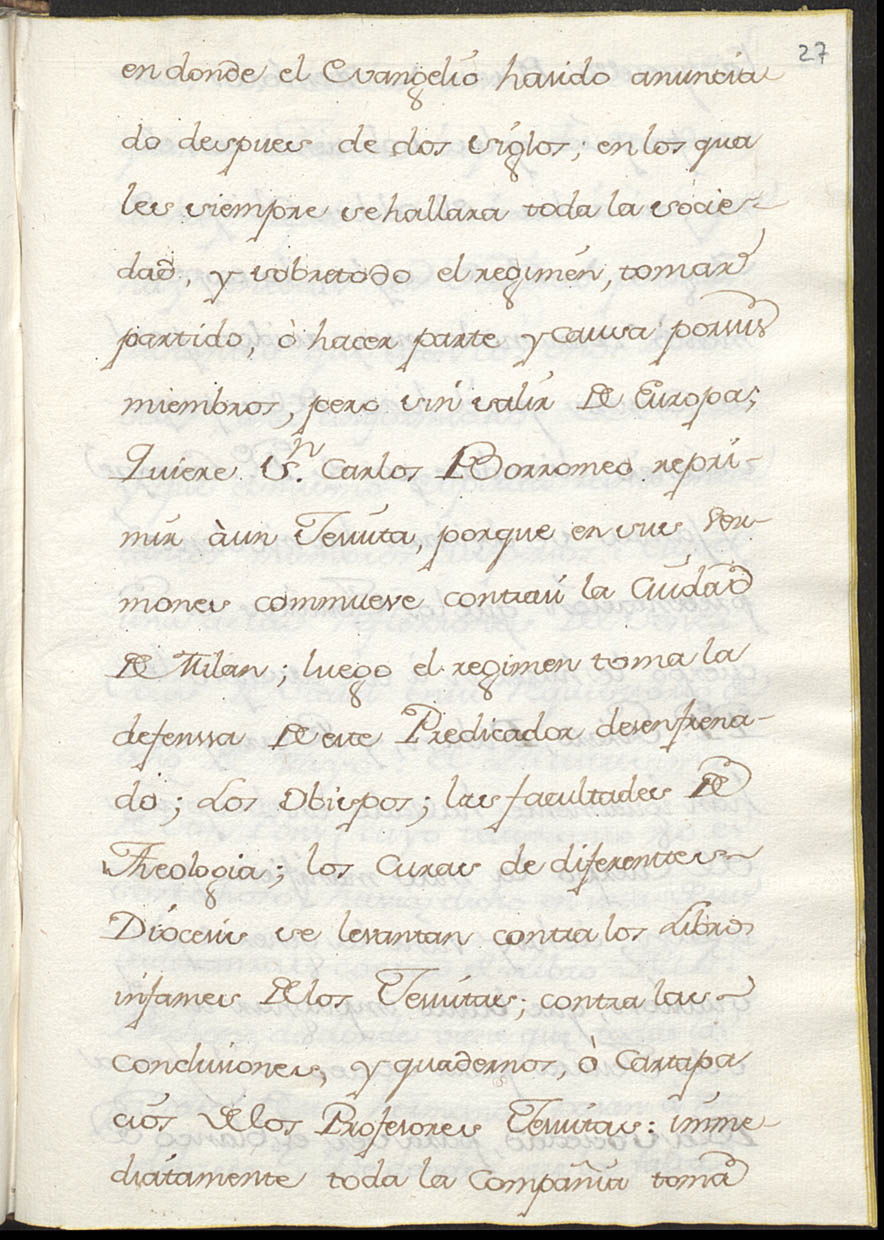 27
en donde el Evangelio ha sido anuncia
do despues de dos siglos; en los qua
les siempre se hallara toda la socie-
dad, y sobretodo el regimen, tomar
partido, ò hacer parte y causa por sus
miembros, pero sin salir de Europa;
Quiere Sn. Carlos Borromeo repri-
mir à un Jesuita, porque en sus Ser-
mones commueve contra si la Ciudad
de Milan; luego el regimen toma la
defenssa de este Predicador desenfrena-
do; Los Obispos; las facultades de
Theologia; los Curas de diferenttes
Diocesis se levantan contra los Libros
infames de los Jesuitas; contra las
conclusiones, y quadernos, ò Cartapa
cios de los Profesores Jesuitas: imme-
diatamente toda la Compañia toma